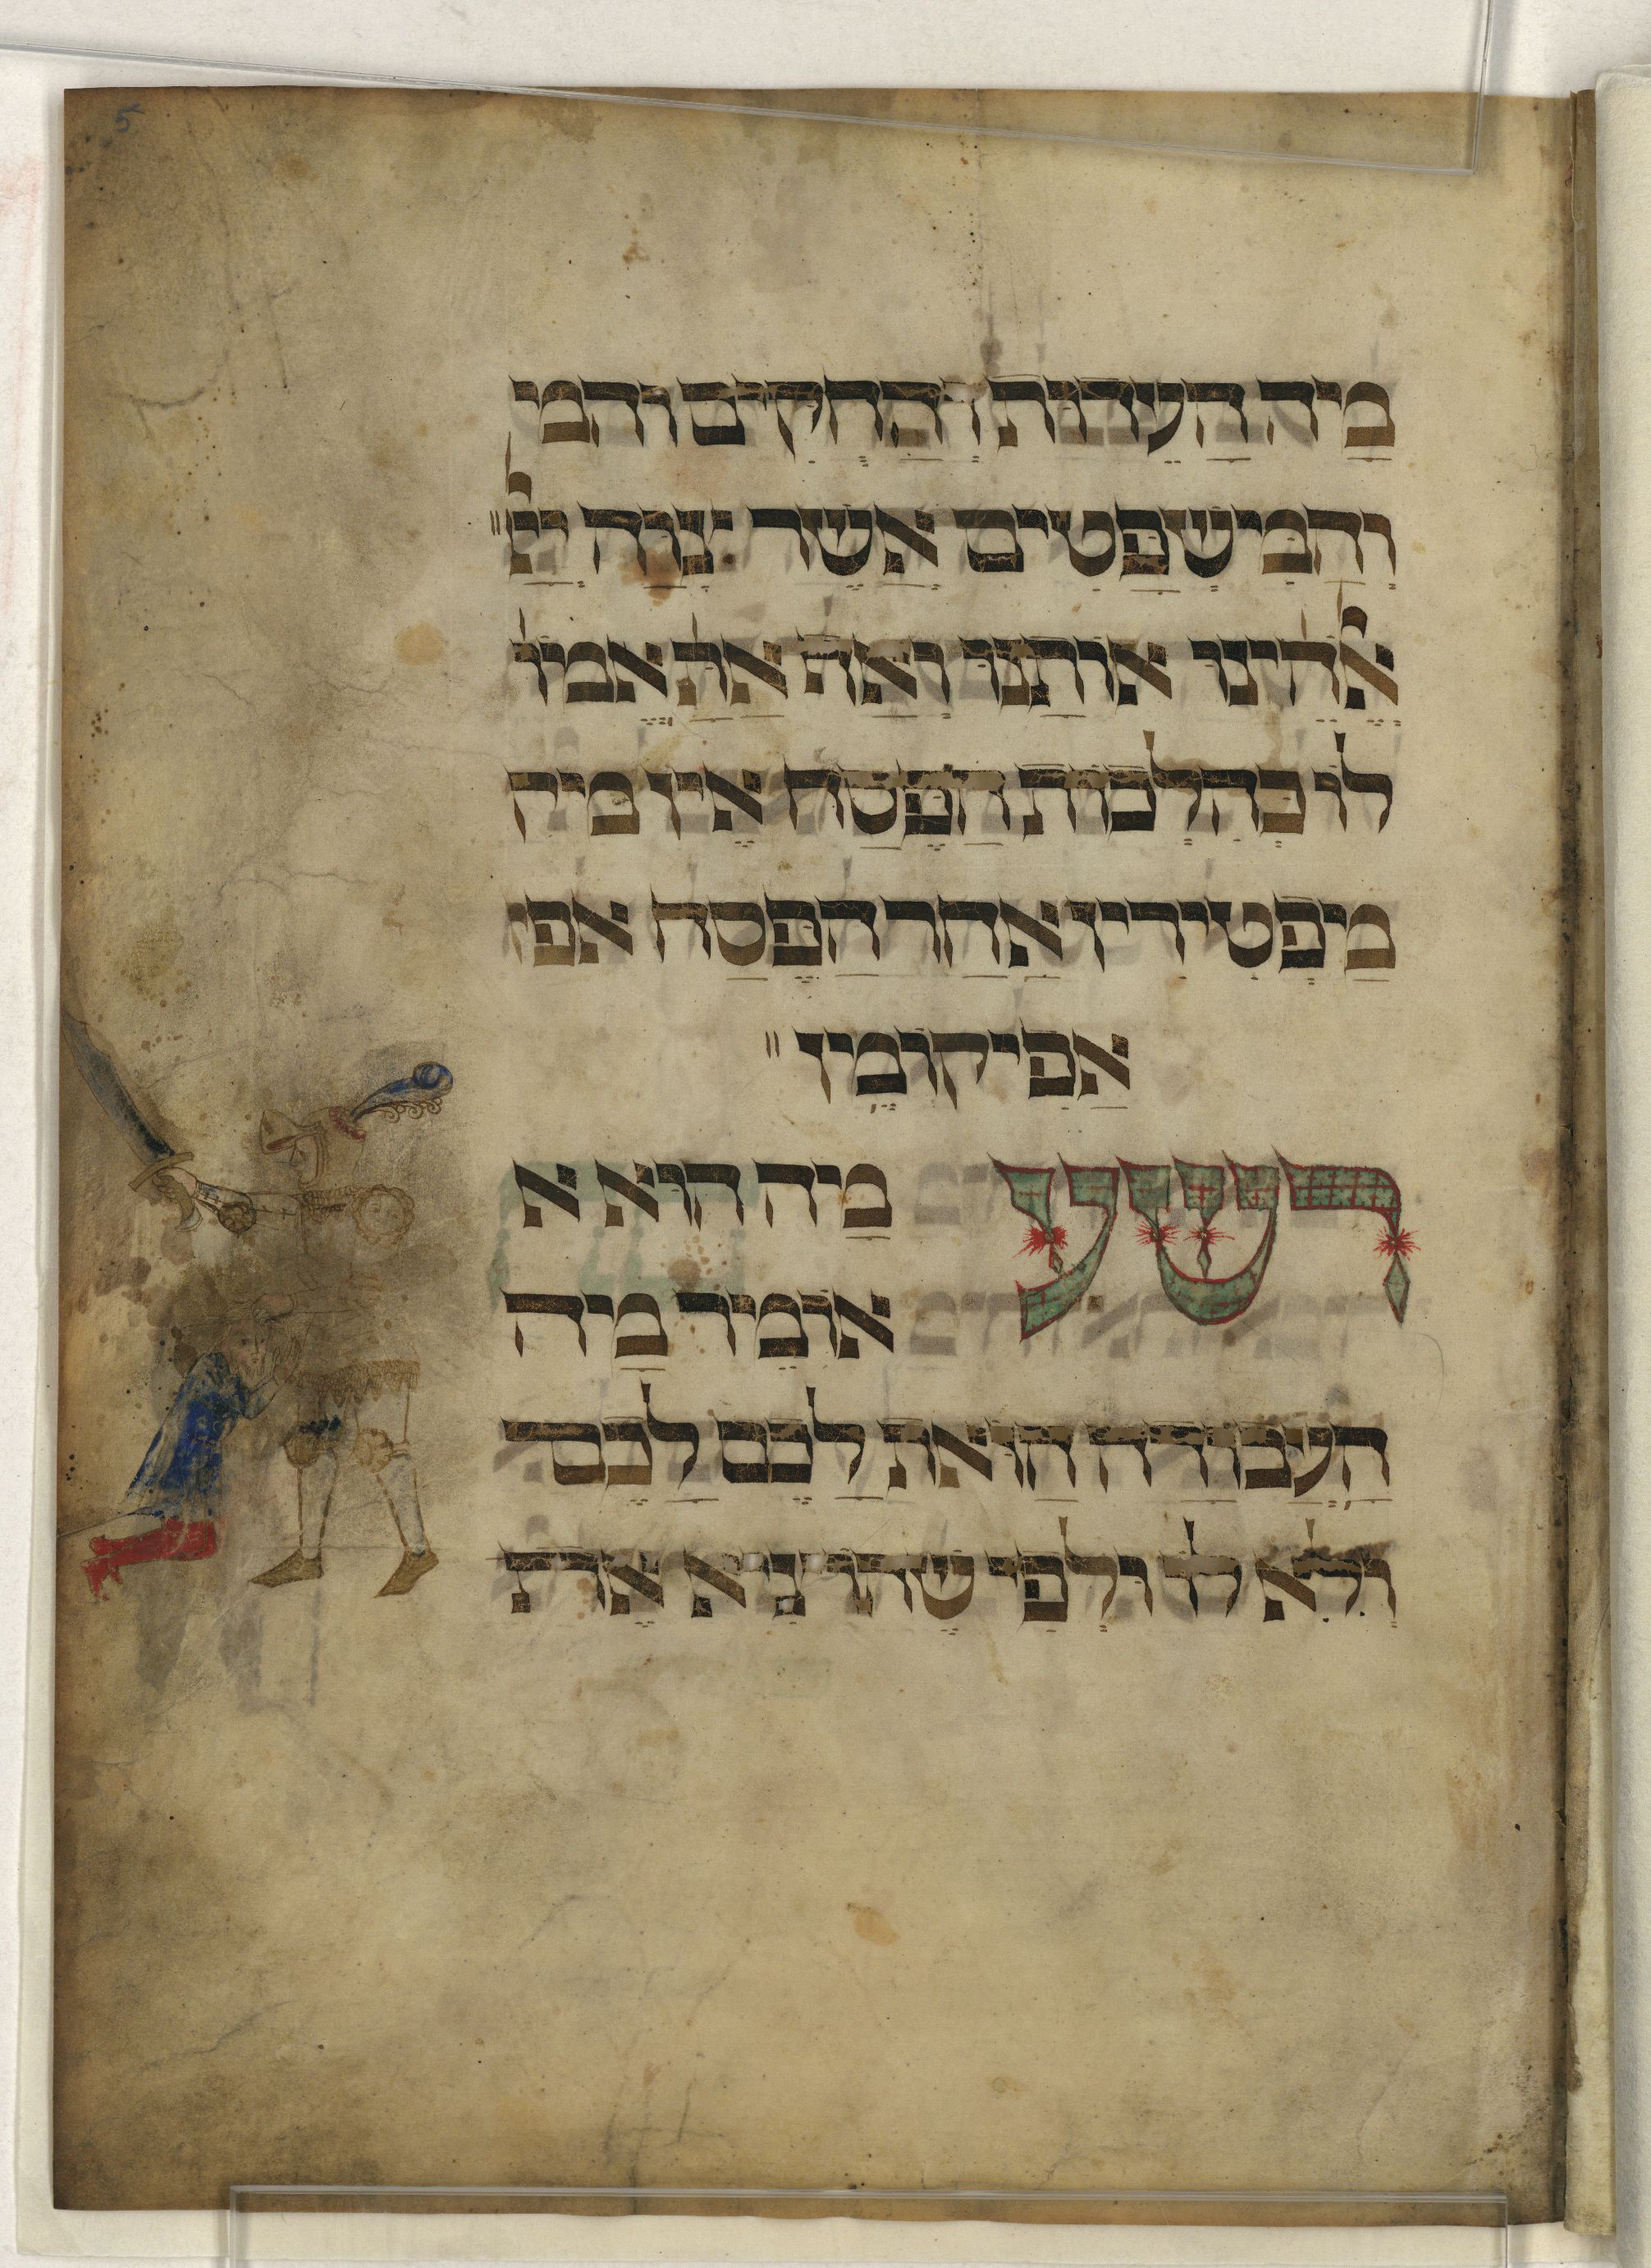 5
מַיה הַעֵידוֹת וְהַחֻקִים והמי
וְהַמִישְׁפָּטִים אֲשֶׁר צִוָּה יְיָ׳
אֱלֹהֵינוּ אוֹתנוּ וְאַף אַתָּ אמוֹ
לוֹ כְּהִלְכוֹת הַפֶּסַח אֵין מיפ
מַיפְטִירִין אַחַר הַפֶּסַח אפי
אֲפִיקוֹמָין
רשע מַיה הוּא א
אוֹמֵיר מַיה
הָעֲבוֹדָה הַזּאֹת לָכֶם לָכֶם
וְלֹא לוֹ וּלְפִי שֶׁהוֹצִיא אֶת